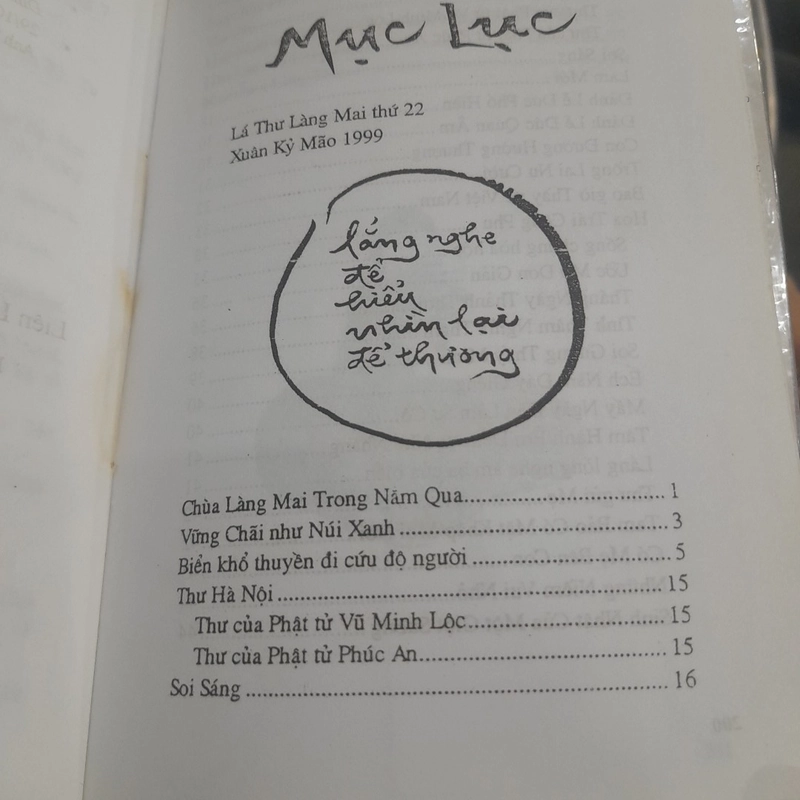 Mục Lục
Lá Thư Làng Mai thứ 22
Xuân Kỷ Mão 1999
lắng nghe
để
hiểu
nhìn lại
để thương
Chùa Làng Mai Trong Năm Qua.......................... 1
Vững Chãi như Núi Xanh.................................... 3
Biển khổ thuyền đi cứu độ người ........................ 5
Thư Hà Nội ........................................................ 15
Thư của Phật tử Vũ Minh Lộc............................. 15
Thư của Phật tử Phúc An.................................... 15
Soi Sáng ............................................................ 16